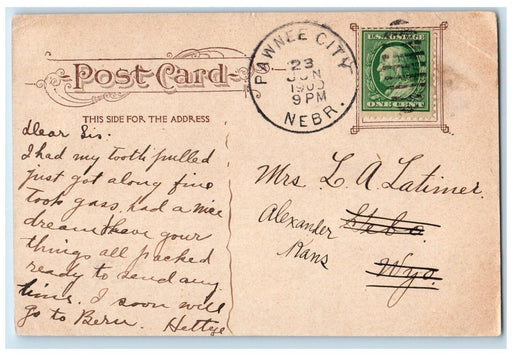 Post Card
THIS SIDE FOR THE ADDRESS
PAWNEE CITY
23
JUN
9 PM
NEBR.
U.S. POSTAGE
ONE CENT
Dear Sis.
I had my tooth pulled
just got along fine
took gass, had a nice
dream I have your
things all packed
ready to send any
time. I soon will
go to Bern.
Mrs. L. A Latimer.
Alexander
Kans
Wyo.